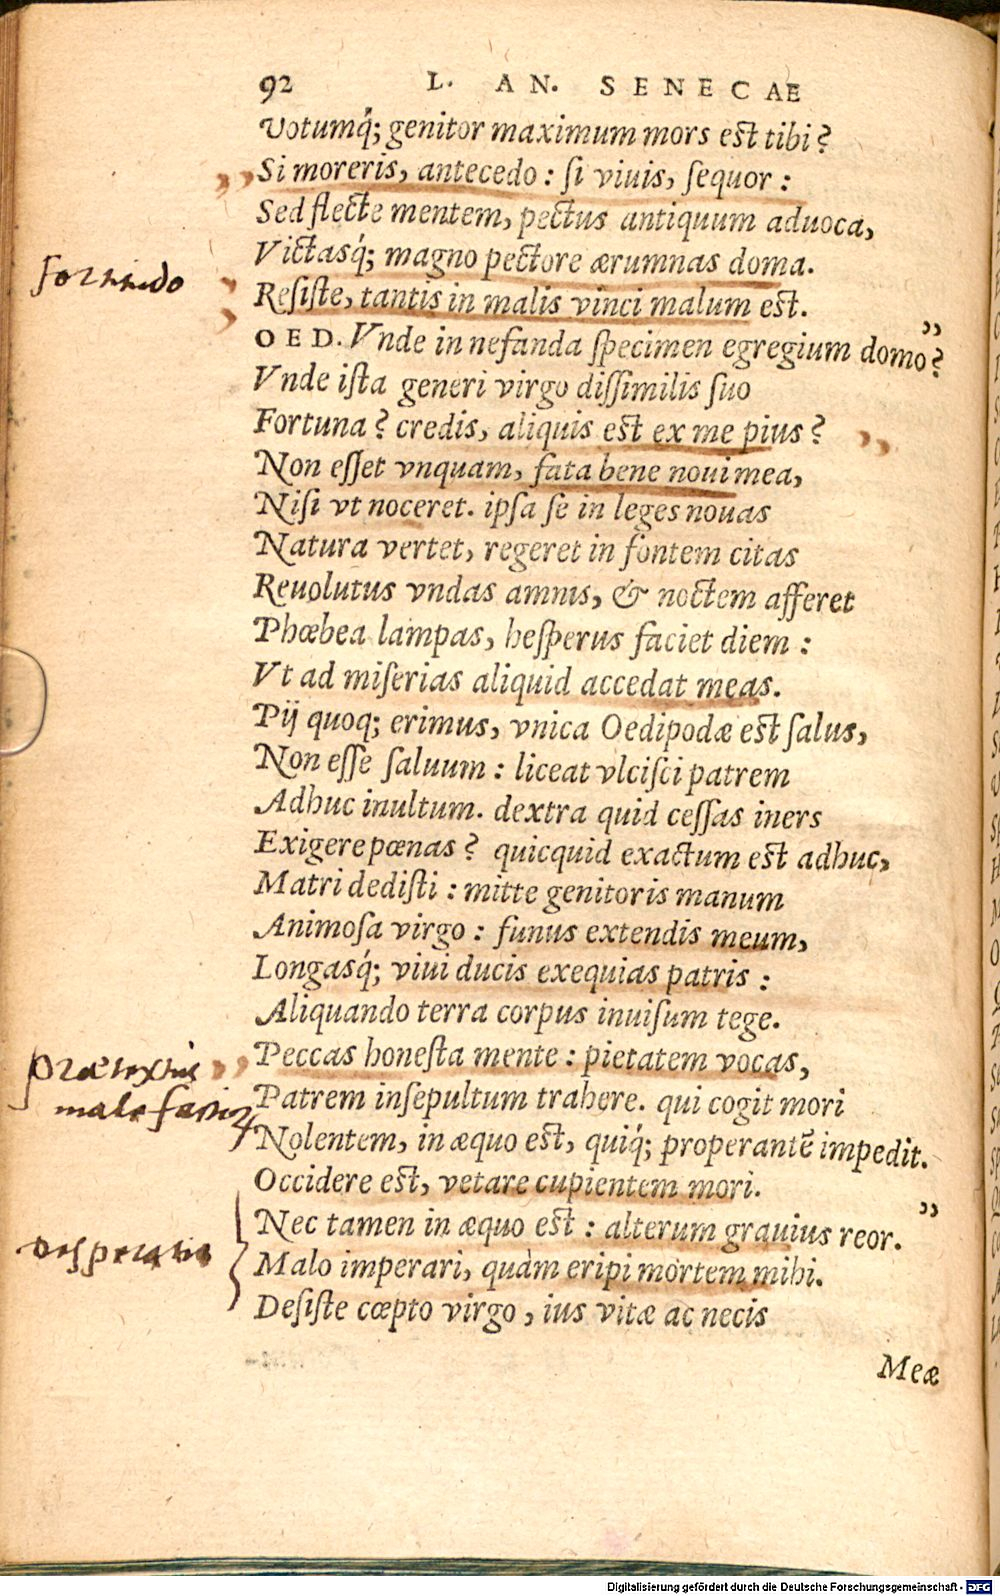 92 L. AN. SENECAE
Votumq́; genitor maximum mors est tibi?
„ Si moreris, antecedo: si viuis, sequor:
Sed flecte mentem, pectus antiquum aduoca,
Victasq́; magno pectore ærumnas doma.
formido
Resiste, tantis in malis vinci malum est.
OED. Vnde in nefanda specimen egregium domo? ”
Vnde ista generi virgo dissimilis suo
Fortuna? credis, aliquis est ex me pius?
Non esset vnquam, fata bene noui mea,
Nisi vt noceret. ipsa se in leges nouas
Natura vertet, regeret in fontem citas
Reuolutus vndas amnis, & noctem afferet
Phœbea lampas, hesperus faciet diem:
Vt ad miserias aliquid accedat meas.
Pij quoq; erimus, vnica Oedipodæ est salus,
Non esse saluum: liceat vlcisci patrem
Adhuc inultum. dextra quid cessas iners
Exigere pœnas? quicquid exactum est adhuc,
Matri dedisti: mitte genitoris manum
Animosa virgo: funus extendis meum,
Longasq́; viui ducis exequias patris:
Aliquando terra corpus inuisum tege.
Peccas honesta mente: pietatem vocas,
Patrem insepultum trahere. qui cogit mori
Nolentem, in æquo est, quiq́; properantē impedit.
Occidere est, vetare cupientem mori.
Nec tamen in æquo est: alterum grauius reor. ”
desperatio
Malo imperari, quàm eripi mortem mihi.
Desiste cœpto virgo, ius vitæ ac necis
Meæ
Digitalisierung gefördert durch die Deutsche Forschungsgemeinschaft - DFG